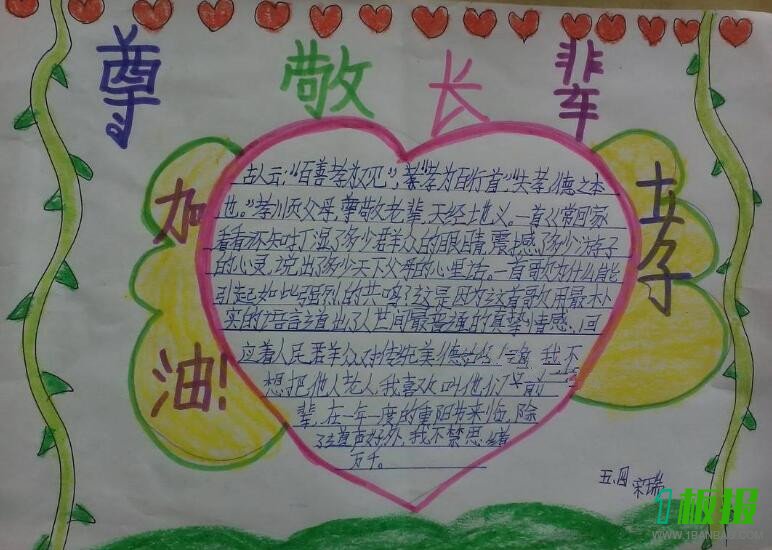 尊敬长辈
加油!
孝
古人云:"百善孝为先","孝为百行首""夫孝,德之本
也。"孝川页父母,尊敬老辈,天经土也义。一首《常回家
看看》不知吐丁湿了多少君羊众的眼睛,震撼了多少游子
的心灵,说出了多少天下父母的心里话。一首歌为什么能
引起如此强烈的共鸣?这是因为这首歌用最朴
实的语言道出了人世间最普通的真挚情感,回
应着人民君羊众对传统美德 我不
想把他人老人,我喜欢叫他们 前
辈,在一年一度的重阳节来临,除
了道声好外,我不禁思绪
万千。
五、四 宋瑞
1板报
WWW.1BANBAO.COM